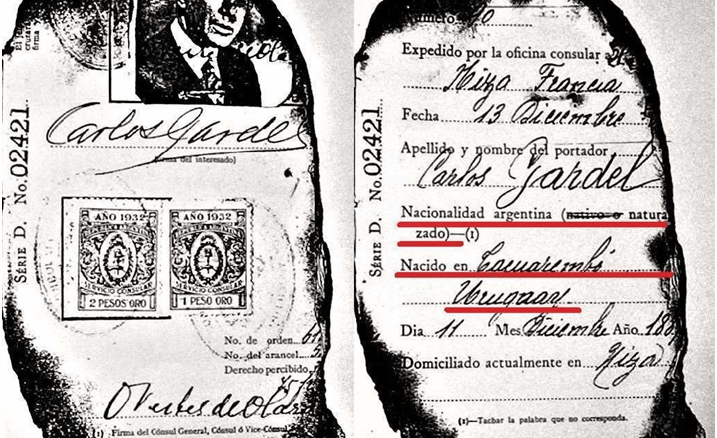 SÉRIE D. No. 02421
Carlos Gardel
(firma del interesado)
AÑO 1932
REPUBLICA ARGENTINA
SERVICIO CONSULAR
2 PESOS ORO
AÑO 1932
REPUBLICA ARGENTINA
SERVICIO CONSULAR
1 PESO ORO
No. de orden
No. del arancel
Derecho percibido
(1) Firma del Cónsul General, Cónsul ó Vice-Cónsul
SÉRIE D. No. 02421
Número 10
Expedido por la oficina consular
Niza Francia
Fecha 13 Diciembre
Apellido y nombre del portador
Carlos Gardel
Nacionalidad argentina (nativo o natura
zado)—(1)
Nacido en Tacuarembó
Uruguay
Dia 11 Mes Diciembre Año 188
Domiciliado actualmente en Niza
(1)—Tachar la palabra que no corresponda.